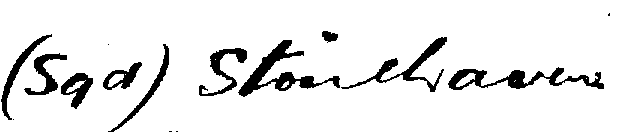 (Sgd) Stonehaven